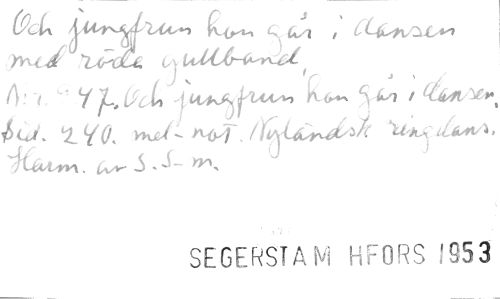 Och jungfrun hon går i dansen
med röda gullband,
N:r 47. Och jungfrun hon går i dansen.
Sid. 240. mel-not. Nyländsk ringdans.
Harm. av S. S-m.
SEGERSTAM HFORS 1953